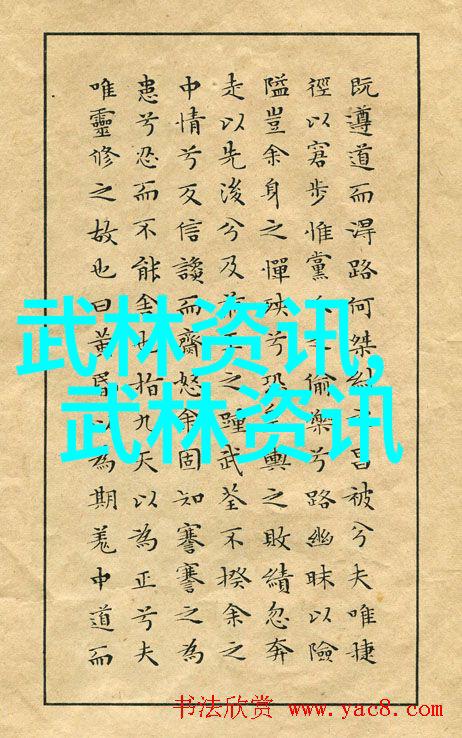 既遵道而淂路何桀紂昌被兮夫唯捷
徑以窘步惟黨偷樂兮路幽昧以險
隘豈余身之憚殃兮恐輿之敗績忽奔
走以先後兮及之踵武荃不揆余之
中情兮反信讒而齋怒余固知謇謇之為
患兮忍而不能舍也指九天以為正兮夫
唯靈修之故也曰黃昏為期羌中道而
武林资讯,
武林资讯
书法欣赏 www.yac8.com